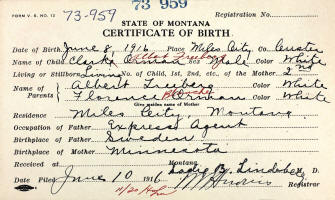 73 959
FORM V. S. NO. 12 73-959 Registration No.
STATE OF MONTANA
CERTIFICATE OF BIRTH
Date of Birth June 8, 1916 Place Miles City Co. Custer
Name of Child Sex Male Color White
Living or Stillborn Living No. Child, 1st, 2nd, etc., of the Mother 2nd
Name of Parents Albert Color White
Florence Color White
Give maiden name of Mother
Residence Miles City, Montana
Occupation of Father Express Agent
Birthplace of Father Sweden
Birthplace of Mother Minnesota
Received at Montana
Date Filed June 10 1916
Registrar
11/20